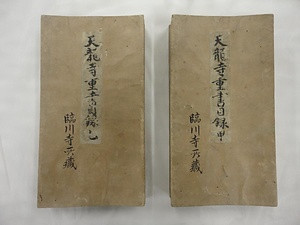 天龍寺重書目録甲
臨川寺所蔵
天龍寺重書目録乙
臨川寺所蔵